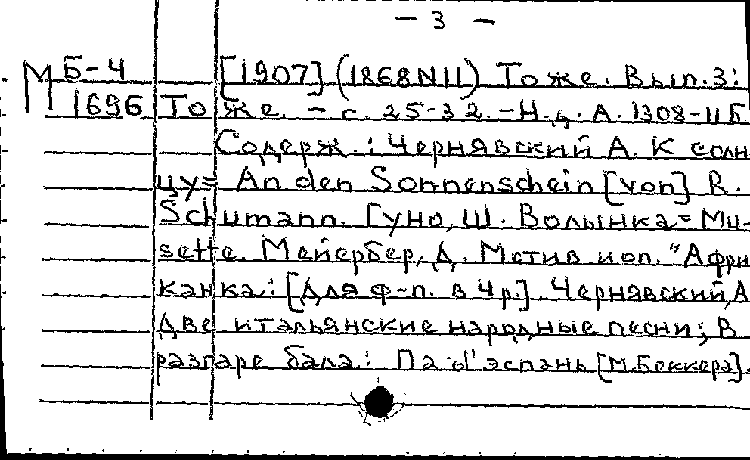 — 3 —
М Б-4 [1907] (1868 N11) То же. Вып. 3:
1696 То же. – с. 25-32. – Н.д. А. 1308-11 Б
Содерж.: Чернявский А. К солн
цу = An den Sonnenschein [von] R.
Schumann. Гуно, Ш. Волынка = Mu-
sette. Мейербер, Д. Мотив из оп. "Афри
канка": [Для ф-п. в 4 р.]. Чернявский, А
Две итальянские народные песни; В
разгаре бала: Па д'эспань [М. Беккера].